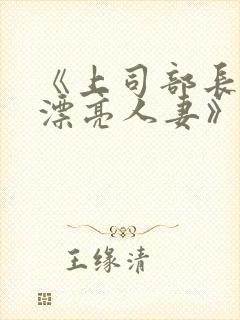 《上司部長
漂亮人妻》
王缘清